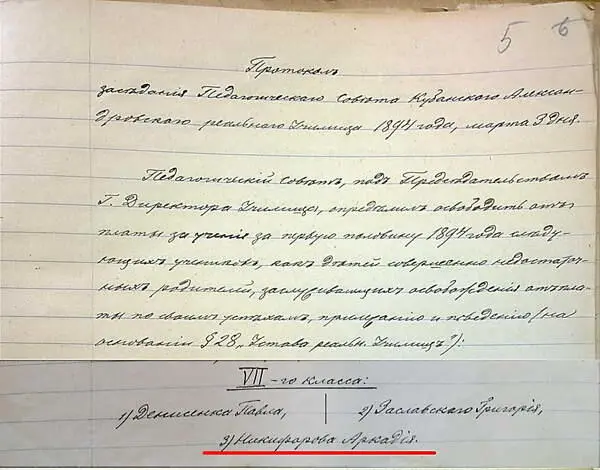 5 6
Протоколъ
засѣданія Педагогическаго Совѣта Кубанскаго Алексан-
дровскаго реальнаго Училища 1894 года, марта 3 дня.
Педагогическій Совѣтъ, подъ Предсѣдательствомъ
Г. Директора Училища, опредѣлилъ освободить отъ
платы за ученіе за первую половину 1894 года слѣду-
ющихъ учениковъ, какъ дѣтей совершенно недостаточ-
ныхъ родителей, заслуживающихъ освобожденія отъ пла-
ты по своимъ успѣхамъ, прилежанію и поведенію (на
основаніи § 28 „Устава реальн. Училищъ"):
VII-го класса:
1) Денисенка Павла, 2) Заславскаго Григорія,
3) Никифорова Аркадія.